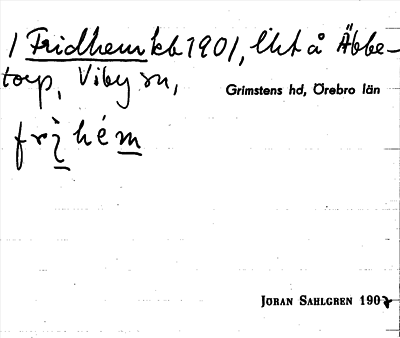 1 Fridhem kb 1901, lht å Äbbe-
torp, Viby sn,
Grimstens hd, Örebro län
frìhém
JÖRAN SAHLGREN 1907